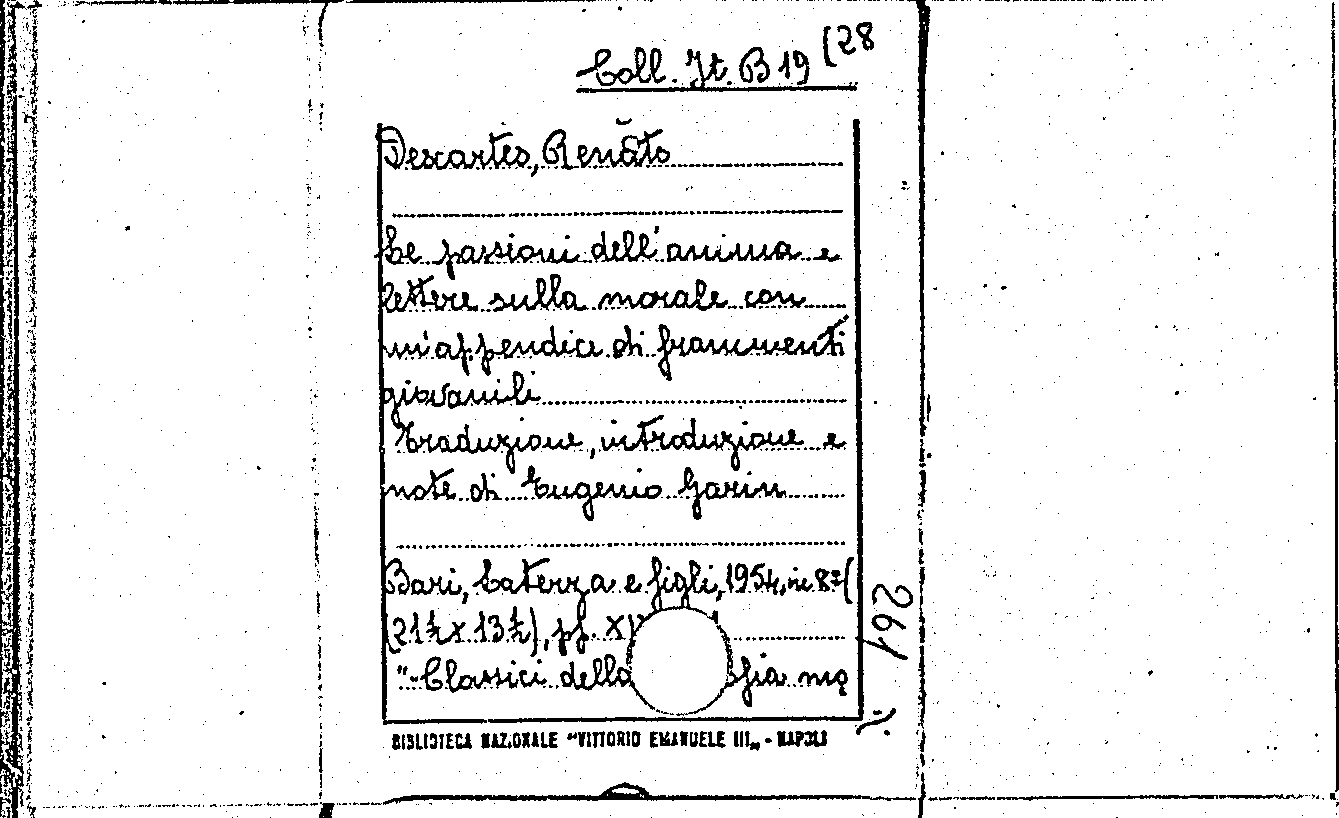 Coll. It. B 19 (28
Descartes, Renato
Le passioni dell'anima e
lettere sulla morale con
un'appendice di frammenti
giovanili
Traduzione, introduzione e
note di Eugenio Garin
Bari, Laterza e figli, 1954, in 8º (
(21½ x 13½), pp.
"Classici della fia mo
261
BIBLIOTECA NAZIONALE "VITTORIO EMANUELE III„ - NAPOLI